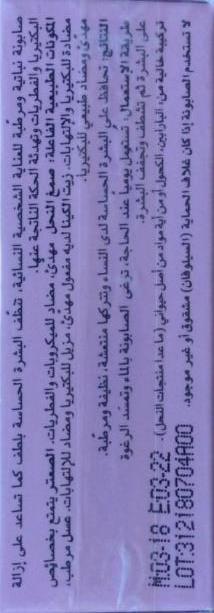 صابونة نباتية ومرطبة للعناية الشخصية النسائية، تنظف البشرة الحساسة بلطف كما تساعد على إزالة
البكتيريا والفطريات وتهدئة الحكة الناتجة عنها.
المكونات الطبيعية الفاعلة: صمغ النحل مهدئ، مضاد للميكروبات والفطريات. الصعتر يتمتع بخصائص
مضادة للبكتيريا والإلتهابات. زيت الكينا لديه مفعول مهدئ، مزيل للبكتيريا ومضاد للإلتهابات. عسل مرطب،
مهدئ ومضاد طبيعي للبكتيريا.
النتائج: تحافظ على البشرة الحساسة لدى النساء وتتركها منتعشة، نظيفة ومرطبة.
طريقة الإستعمال: تستعمل يومياً عند الحاجة. ترغى الصابونة بالماء وتمسد الرغوة
على البشرة ثم تشطف وتجفف البشرة.
تركيبة خالية من: البارابين، الكحول أو من أية مواد من أصل حيواني (ما عدا منتجات النحل).
لا تستخدم الصابونة إذا كان غلاف الحماية (السيلوفان) مشقوق أو غير موجود.
M:03-18 E:03-22
LOT:312180704A00